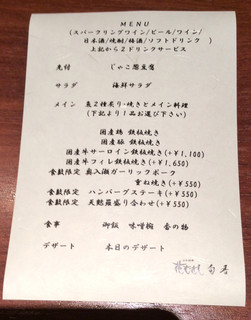 MENU
(スパークリングワイン/ビール/ワイン/
日本酒/焼酎/梅酒/ソフトドリンク )
上記から2ドリンクサービス
先付 じゃこ 豆腐
サラダ 海鮮サラダ
メイン 魚2種炙り・焼きとメイン料理
(下記より1品お選び下さい)
国産鶏 鉄板焼き
国産豚 鉄板焼き
国産牛サーロイン鉄板焼き(+¥1,100)
国産牛フィレ鉄板焼き(+¥1,650)
食数限定 奥入瀬ガーリックポーク
重ね焼き(+¥550)
食数限定 ハンバーグステーキ(+¥550)
食数限定 天麩羅盛り合わせ(+¥550)
食事 御飯 味噌椀 香の物
デザート 本日のデザート